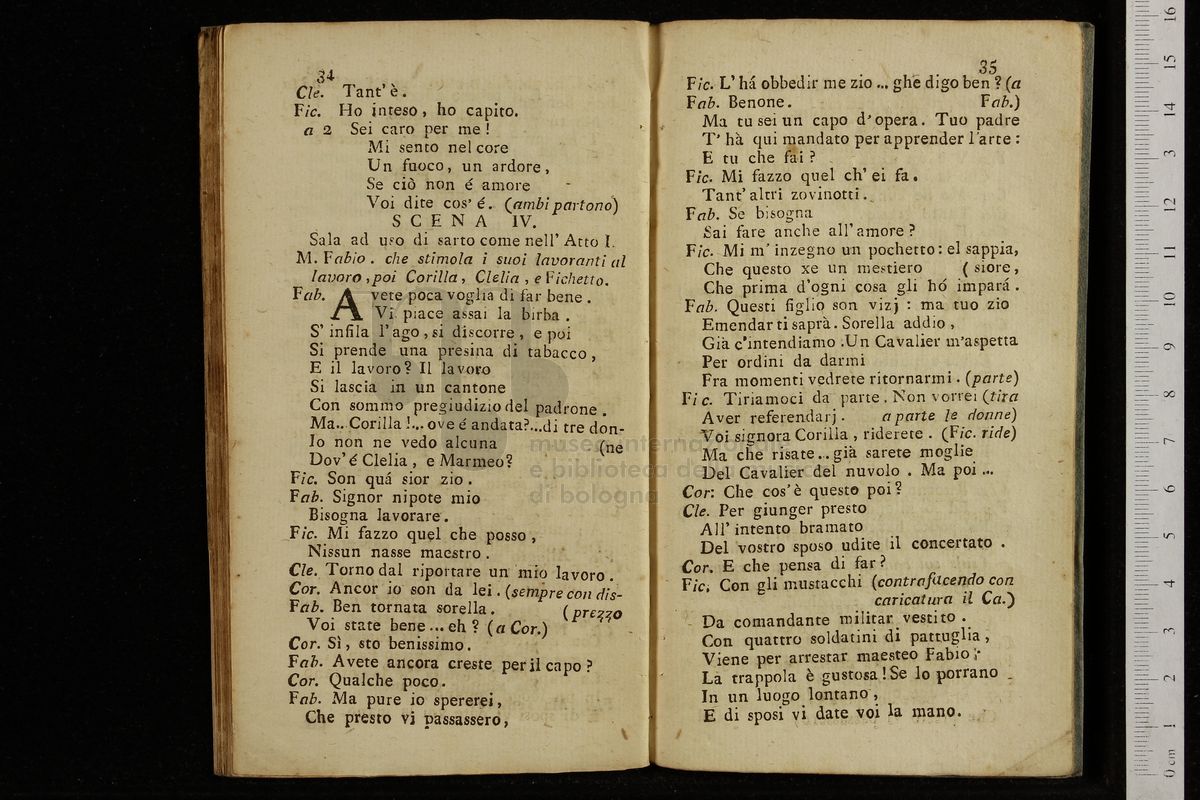 34
Cle. Tant' è.
Fic. Ho inteso, ho capito.
a 2 Sei caro per me!
Mi sento nel core
Un fuoco, un ardore,
Se ciò non é amore
Voi dite cos' é. (ambi partono)
SCENA IV.
Sala ad uso di sarto come nell' Atto I.
M. Fabio. che stimola i suoi lavoranti al
lavoro, poi Corilla, Clelia, e Fichetto.
Fab. Avete poca voglia di far bene.
Vi piace assai la birba.
S' infila l' ago, si discorre, e poi
Si prende una presina di tabacco,
E il lavoro? Il lavoro
Si lascia in un cantone
Con sommo pregiudizio del padrone.
Ma.. Corilla!... ove é andata?...di tre don-
Io non ne vedo alcuna (ne
Dov' é Clelia, e Marmeo?
Fic. Son quá sior zio.
Fab. Signor nipote mio
Bisogna lavorare.
Fic. Mi fazzo quel che posso,
Nissun nasse maestro.
Cle. Torno dal riportare un mio lavoro.
Cor. Ancor io son da lei. (sempre con dis-
Fab. Ben tornata sorella. (prezzo
Voi state bene... eh? (a Cor.)
Cor. Sì, sto benissimo.
Fab. Avete ancora creste per il capo?
Cor. Qualche poco.
Fab. Ma pure io spererei,
Che presto vi passassero,
35
Fic. L' há obbedir me zio ... ghe digo ben? (a
Fab. Benone. Fab.)
Ma tu sei un capo d' opera. Tuo padre
T' hà qui mandato per apprender l'arte:
E tu che fai?
Fic. Mi fazzo quel ch' ei fa.
Tant' altri zovinotti.
Fab. Se bisogna
Sai fare anche all' amore?
Fic. Mi m' inzegno un pochetto: el sappia,
Che questo xe un mestiero (siore,
Che prima d'ogni cosa gli hó impará.
Fab. Questi figlio son vizj: ma tuo zio
Emendar ti saprà. Sorella addio,
Già c'intendiamo. Un Cavalier m'aspetta
Per ordini da darmi
Fra momenti vedrete ritornarmi. (parte)
Fic. Tiriamoci da parte. Non vorrei (tira
Aver referendarj. a parte le donne)
Voi signora Corilla, riderete. (Fic. ride)
Ma che risate.. già sarete moglie
Del Cavalier del nuvolo. Ma poi ...
Cor: Che cos'è questo poi?
Cle. Per giunger presto
All' intento bramato
Del vostro sposo udite il concertato.
Cor. E che pensa di far?
Fic. Con gli mustacchi (contrafacendo con
caricatura il Ca.)
Da comandante militar vestito.
Con quattro soldatini di pattuglia,
Viene per arrestar maesteo Fabio;
La trappola è gustosa! Se lo porrano
In un luogo lontano,
E di sposi vi date voi la mano.
museo internazionale
e biblioteca della musica
di bologna